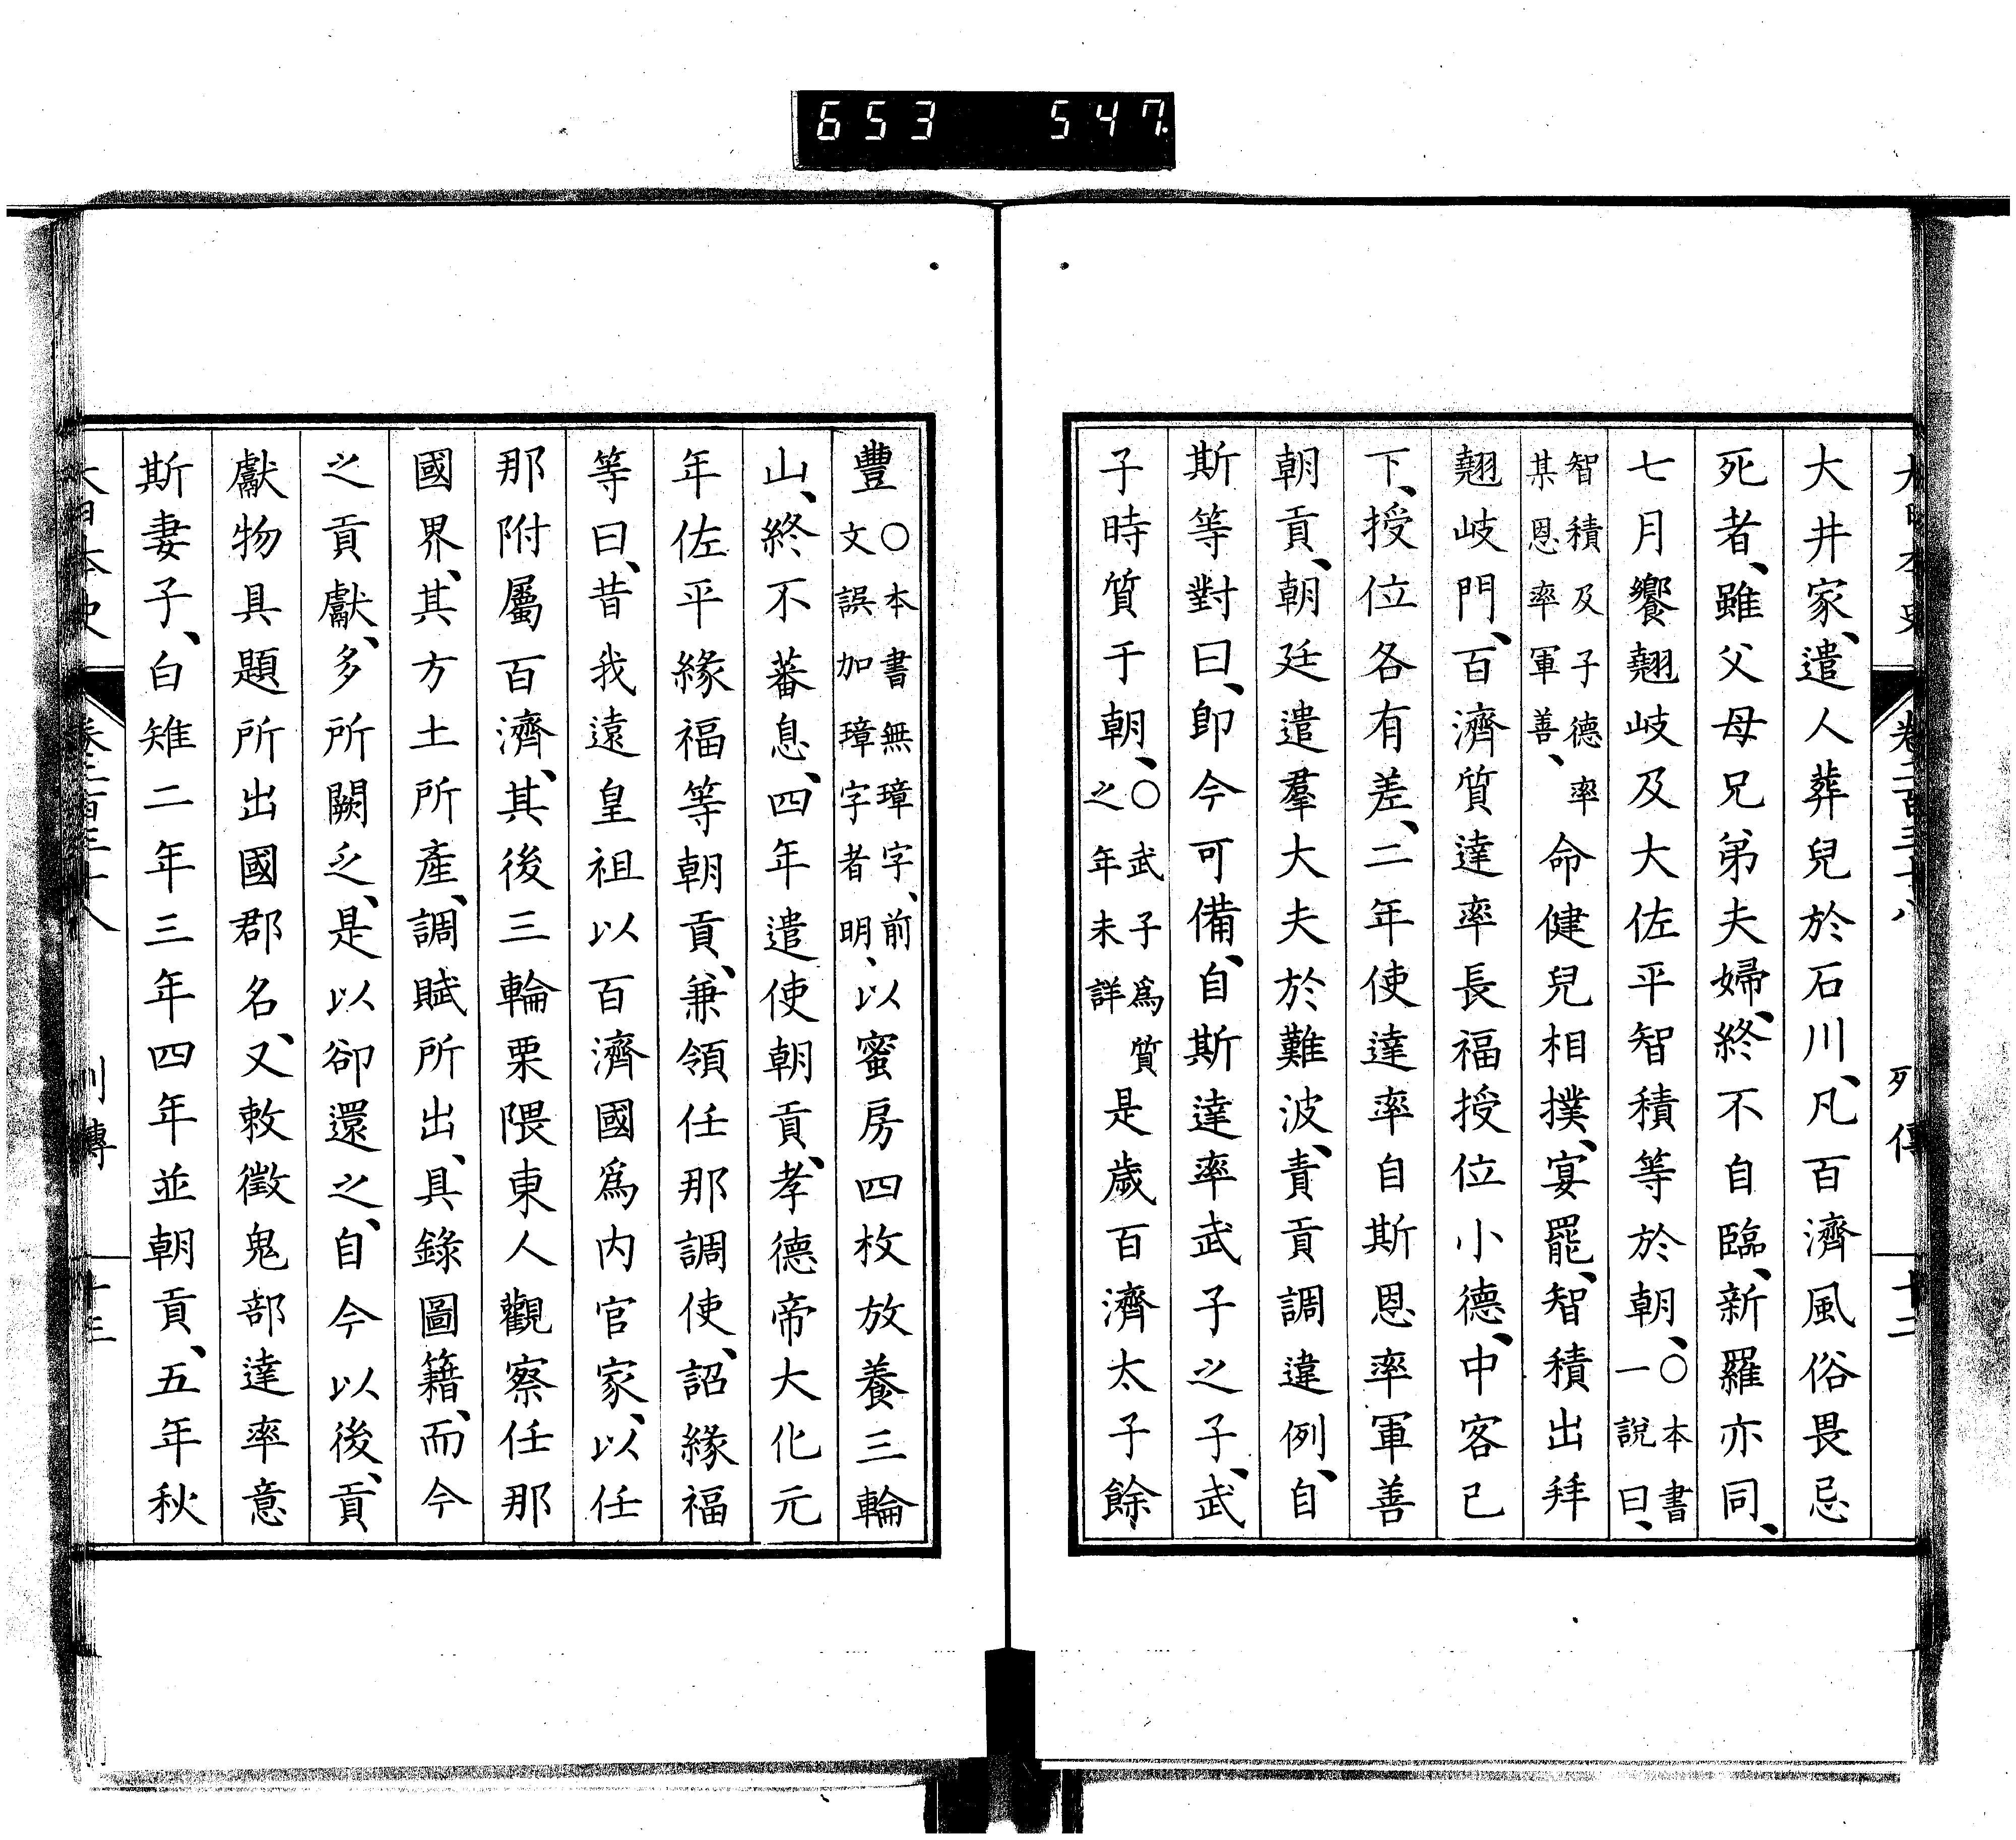 653 547
大井家、遣人葬兒於石川、凡百濟風俗畏忌
死者、雖父母兄弟夫婦、終不自臨、新羅亦同、
七月饗翹岐及大佐平智積等於朝、○本書一說曰、
智積及子德率某恩率軍善、命健兒相撲、宴罷、智積出拜
翹岐門、百濟質達率長福授位小德、中客已
下、授位各有差、二年使達率自斯恩率軍善
朝貢、朝廷遣羣大夫於難波、責貢調違例、自
斯等對曰、卽今可備、自斯達率武子之子、武
子時質于朝、○武子爲質之年未詳是歲百濟太子餘
豐○本書無璋字、前文誤加璋字者明、以蜜房四枚放養三輪
山、終不蕃息、四年遣使朝貢、孝德帝大化元
年佐平緣福等朝貢、兼領任那調使、詔緣福
等曰、昔我遠皇祖以百濟國爲內官家、以任
那附屬百濟、其後三輪栗隈東人觀察任那
國界、其方土所產、調賦所出、具錄圖籍、而今
之貢獻、多所闕乏、是以卻還之、自今以後、貢
獻物具題所出國郡名、又敕徵鬼部達率意
斯妻子、白雉二年三年四年並朝貢、五年秋